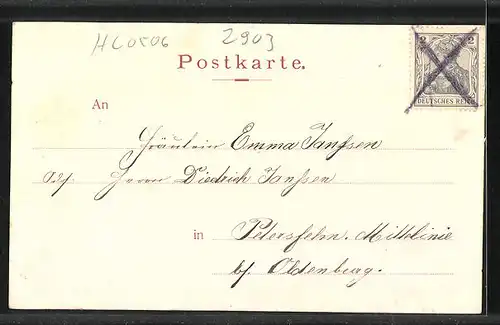 HL0506 2903
Postkarte.
2 2
DEUTSCHES REICH
An
Fräulein Emma Janßen
Adr. Herrn Diedrich Janßen
in Petersfehn. Mittellinie
b/ Oldenburg.